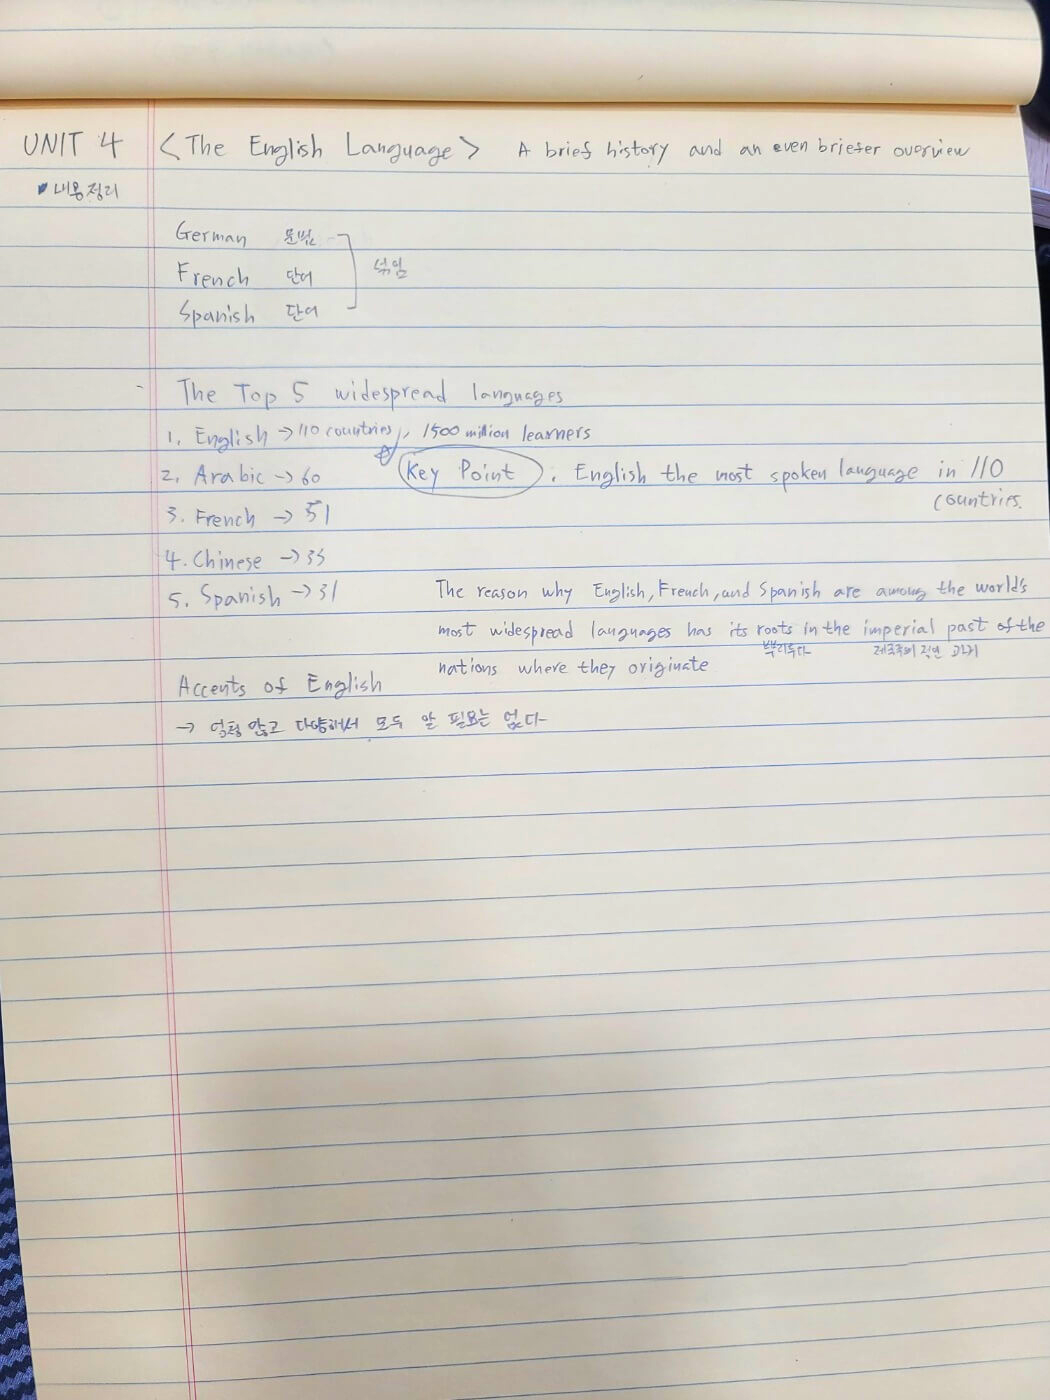 UNIT 4 <The English Language> A brief history and an even briefer overview
내용정리
German 문법
French 단어
섞임
Spanish 단어
The Top 5 widespread languages
1. English → 110 countries, 1500 million learners
2. Arabic → 60
Key Point. English the most spoken language in 110
countries.
3. French → 51
4. Chinese → 35
5. Spanish → 31
The reason why English, French, and Spanish are among the world's
most widespread languages has its roots in the imperial past of the
뿌리두다 제국주의 적인 과거
nations where they originate
Accents of English
→ 엄청 많고 다양해서 모두 알 필요는 없다